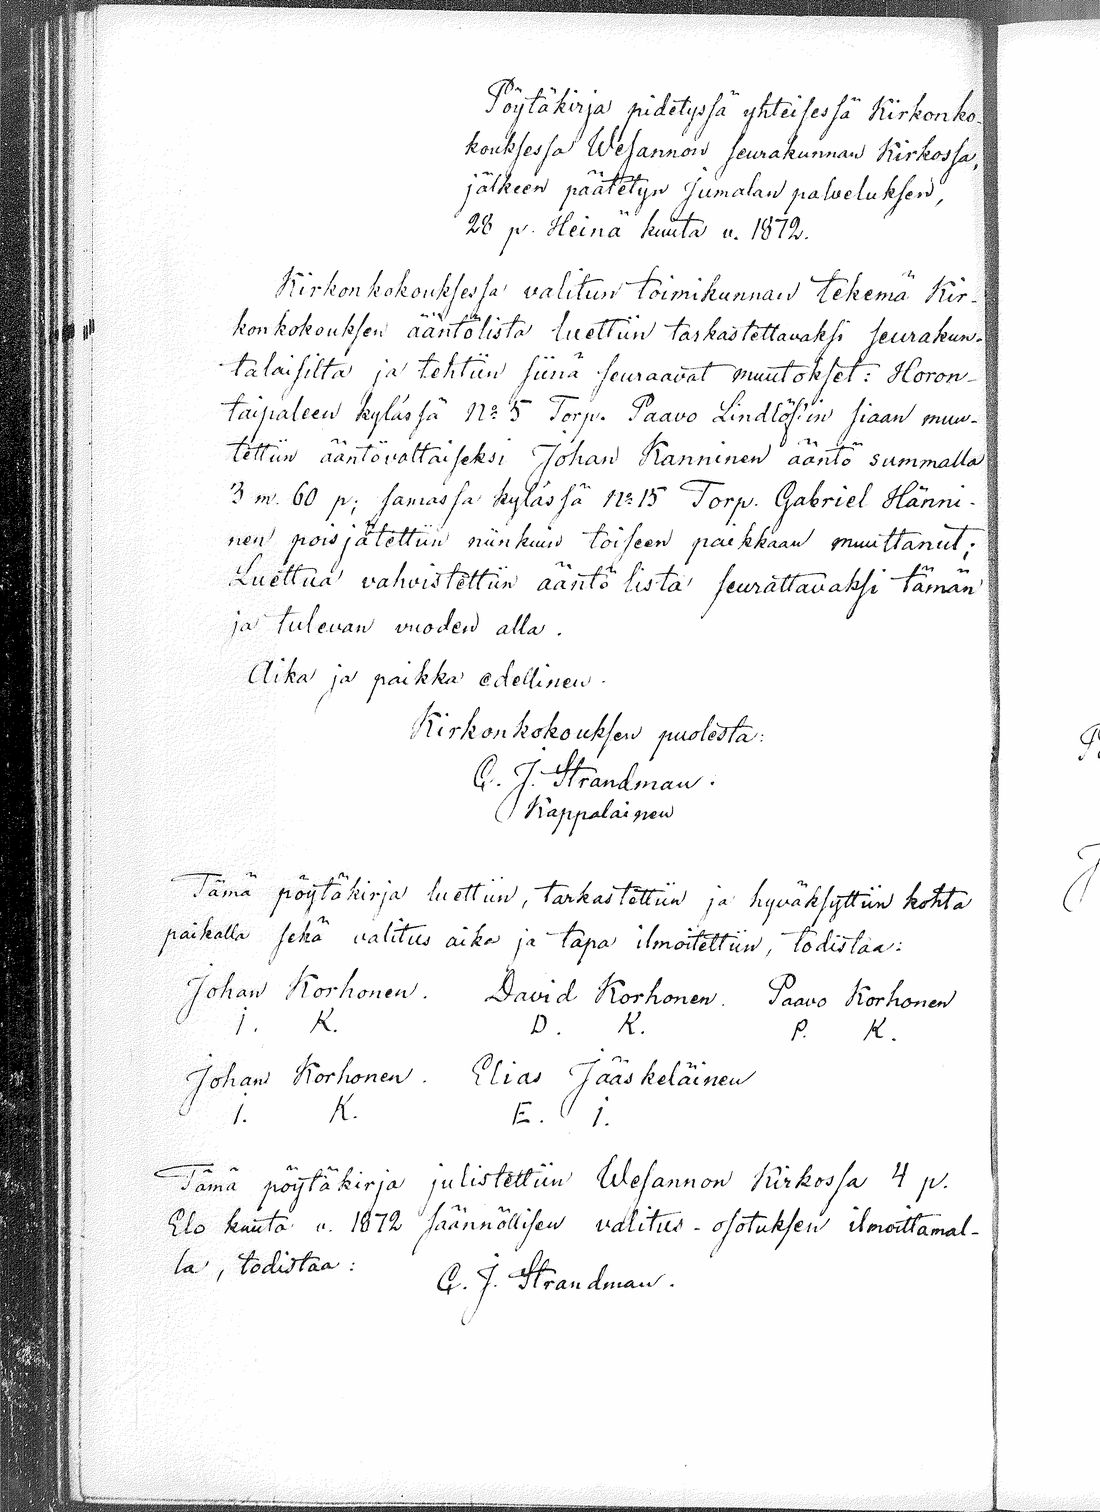 Pöytäkirja pidetyssä yhteisessä Kirkonko-
kouksessa Wesannon seurakunnan Kirkossa,
jälkeen päätetyn Jumalan palveluksen,
28 p. Heinä kuuta v. 1872.
Kirkonkokouksessa valitun toimikunnan tekemä Kir-
konkokouksen ääntölista luettiin tarkastettavaksi seurakun-
talaisilta ja tehtiin siinä seuraavat muutokset: Horon-
taipaleen kylässä No 5 Torp. Paavo Lindlöf'in siaan muu-
tettiin ääntövaltaiseksi Johan Kanninen ääntö summalla
3 m. 60 p; samassa kylässä No 15 Torp. Gabriel Hänni-
nen poisjätettiin niinkuin toiseen paikkaan muuttanut;
Luettua vahvistettiin ääntö lista seurattavaksi tämän
ja tulevan vuoden alla.
Aika ja paikka edellinen.
Kirkonkokouksen puolesta:
G. J. Strandman.
Kappalainen
Tämä pöytäkirja luettiin, tarkastettiin ja hyväksyttiin kohta
paikalla sekä valitus aika ja tapa ilmoitettiin, todistaa:
Johan Korhonen. David Korhonen. Paavo Korhonen
J. K. D. K. P. K.
Johan Korhonen. Elias Jääskeläinen
J. K. E. J.
Tämä pöytäkirja julistettiin Wesannon Kirkossa 4 p.
Elo kuuta v. 1872 säännöllisen valitus-osotuksen ilmoittamal-
la, todistaa:
G. J. Strandman.